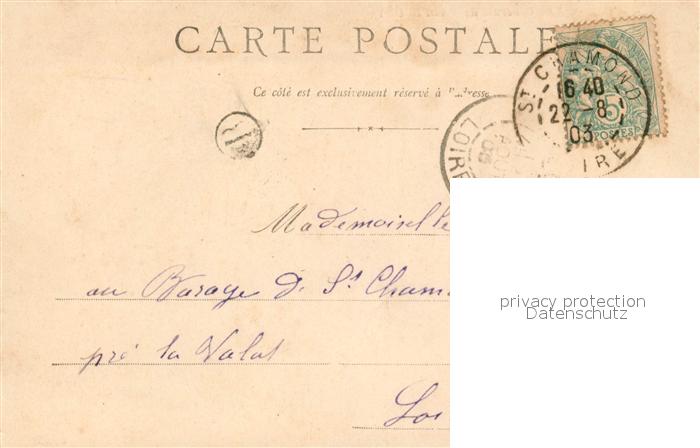 CARTE POSTALE
Ce côté est exclusivement réservé à l'adresse
ST CHAMOND
16 40
22 -8
03
LOIRE
5
POSTES
LOIRE
Mademoiselle
au Barage de St Cham
pré la Valat
Loi
privacy protection
Datenschutz